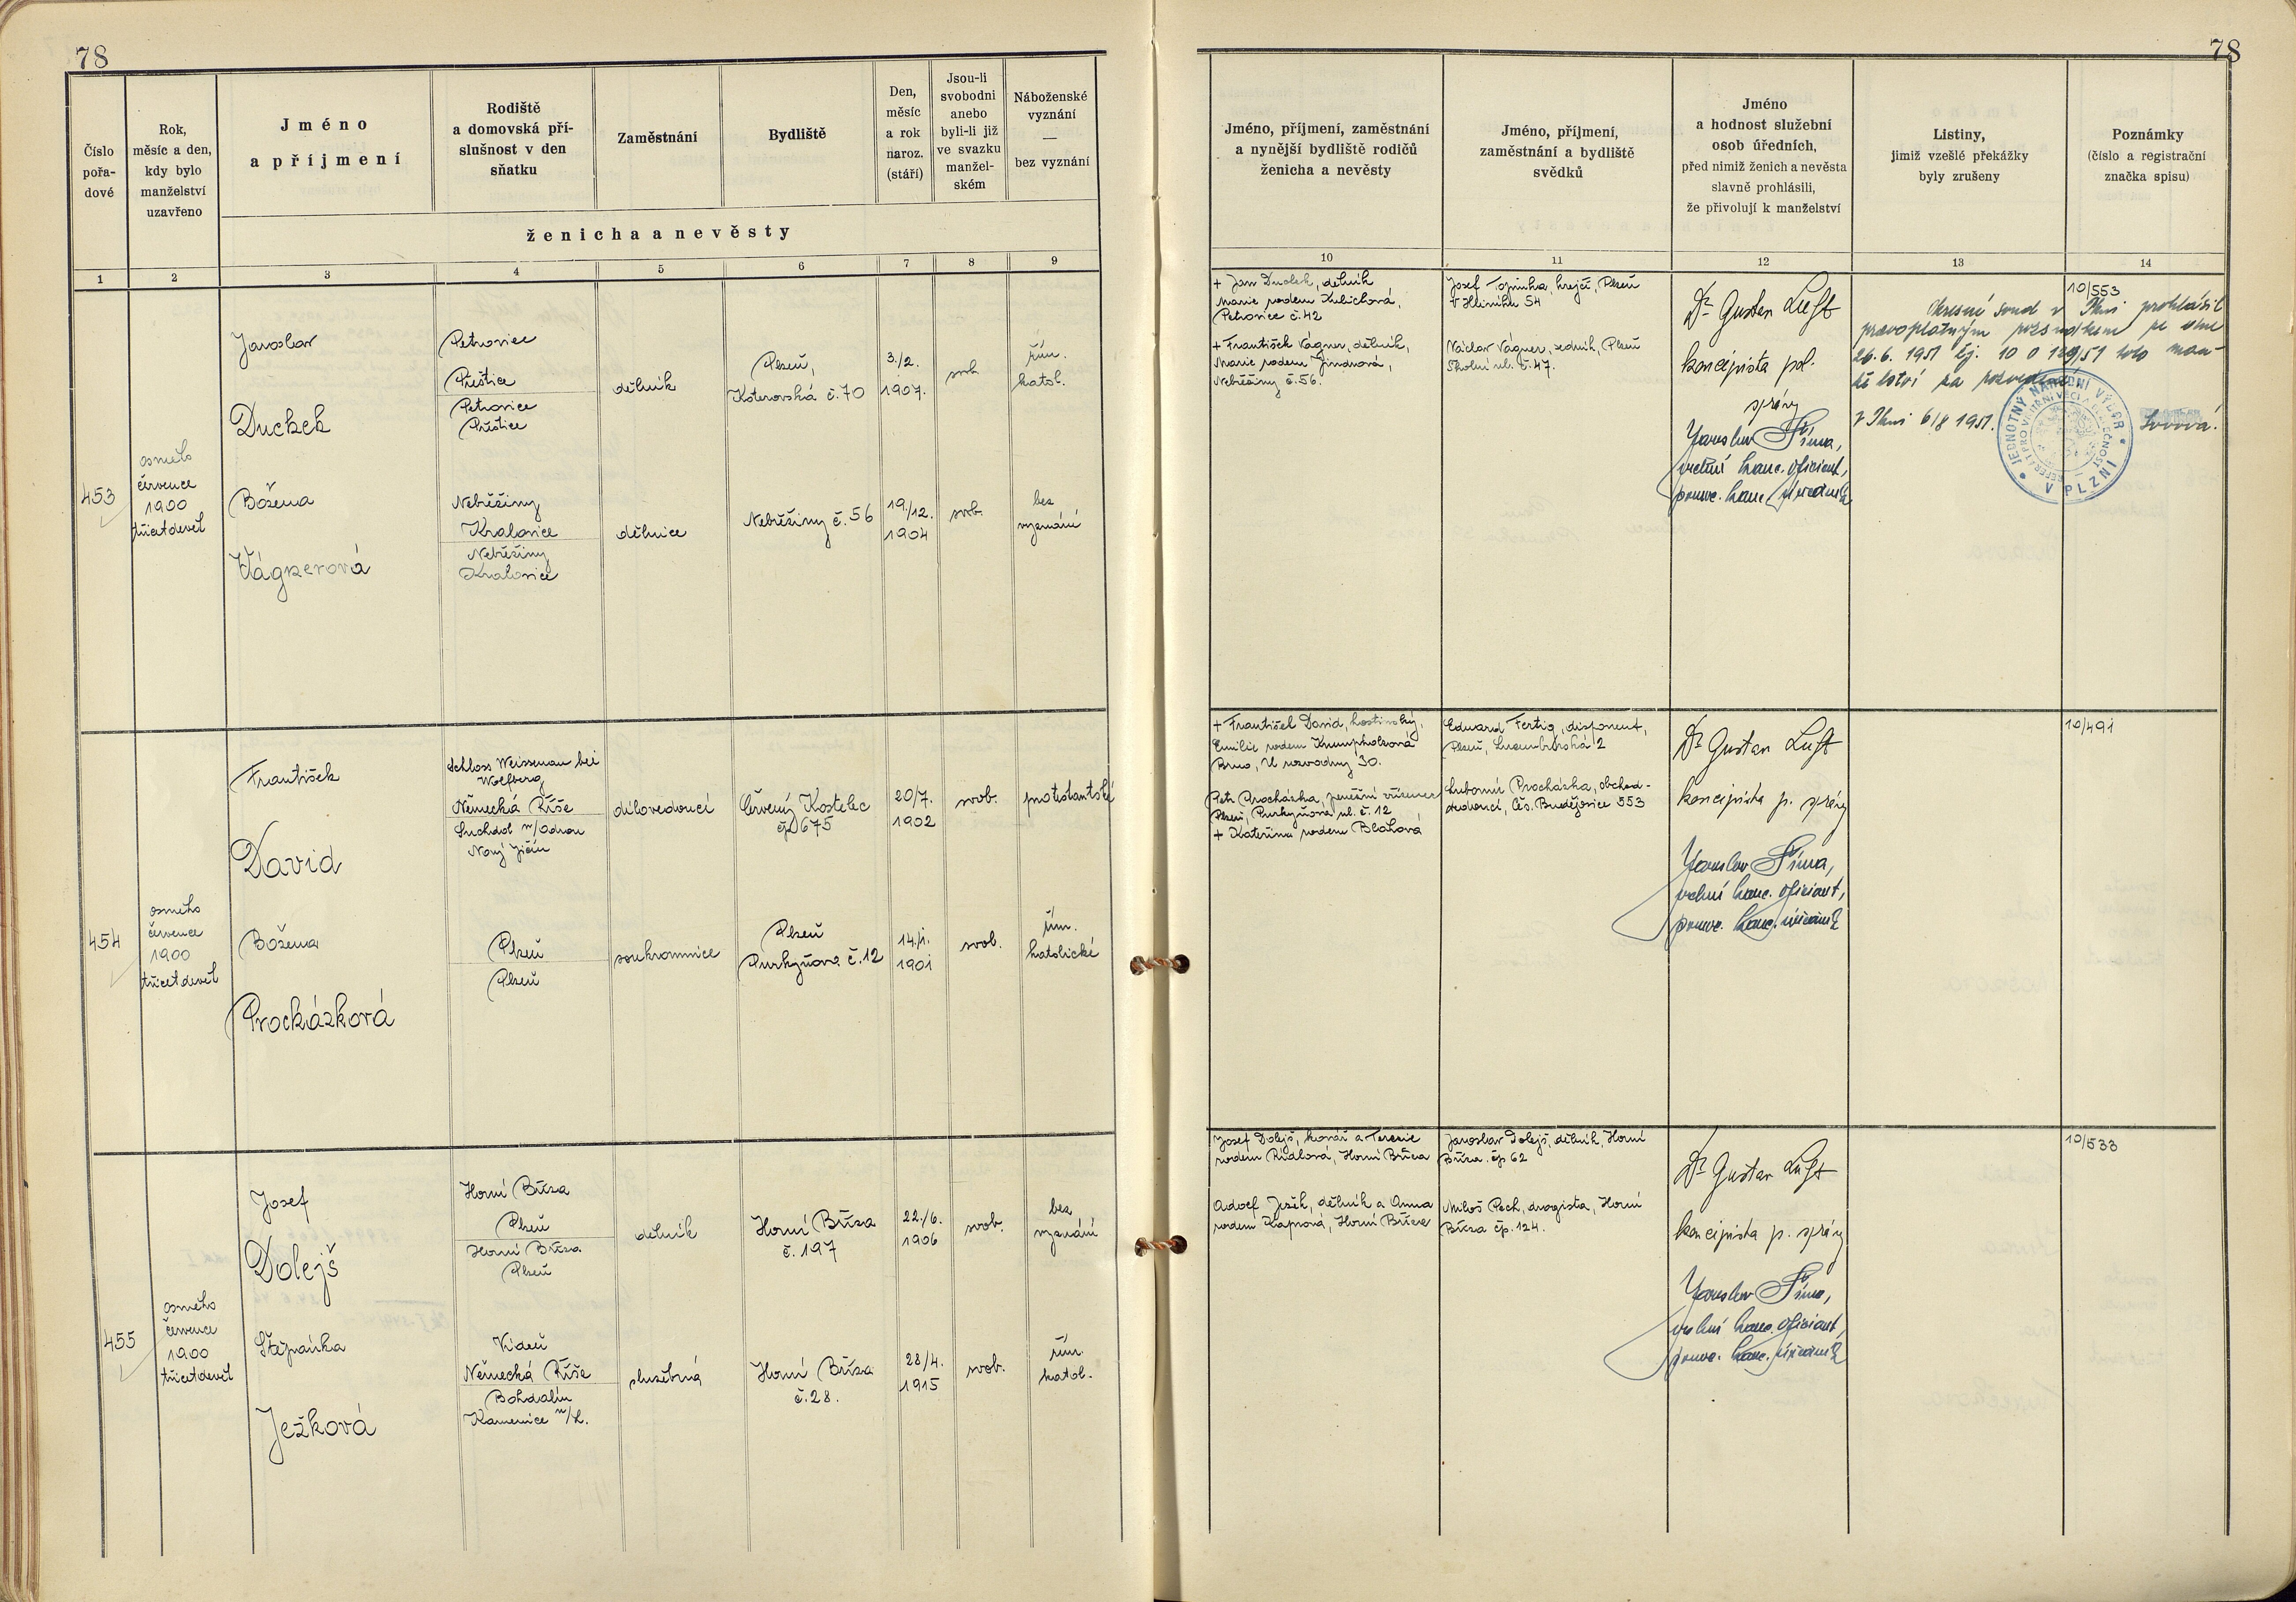 78
78
Číslo
pořa-
dové
Rok,
měsíc a den,
kdy bylo
manželství
uzavřeno
Jméno
a příjmení
Rodiště
a domovská pří-
slušnost v den
sňatku
Zaměstnání
Bydliště
Den,
měsíc
a rok
naroz.
(stáří)
Jsou-li
svobodni
anebo
byli-li již
ve svazku
manžel-
ském
Náboženské
vyznání
—
bez vyznání
ženicha a nevěsty
Jméno, příjmení, zaměstnání
a nynější bydliště rodičů
ženicha a nevěsty
Jméno, příjmení,
zaměstnání a bydliště
svědků
Jméno
a hodnost služební
osob úředních,
před nimiž ženich a nevěsta
slavně prohlásili,
že přivolují k manželství
Listiny,
jimiž vzešlé překážky
byly zrušeny
Poznámky
(číslo a registrační
značka spisu)
1 2 3 4 5 6 7 8 9
10 11 12 13 14
453
osmého
července
1900
třicetdevět
Jaroslav
Duchek
Božena
Vágnerová
Petrovice
Přeštice
Petrovice
Přeštice
Nebřeziny
Kralovice
Nebřeziny
Kralovice
dělník
dělnice
Plzeň,
Koterovská č. 70
Nebřeziny č. 56
3./2.
1907.
19./12.
1904
svob.
svob.
řím.
katol.
bez
vyznání
+ Jan Duchek, dělník
Marie rodem
Petrovice č. 42
+ František Vágner, dělník,
Marie rodem Jindrová,
Nebřeziny č. 56.
Josef krejčí, Plzeň
54
Václav Vágner, zedník, Plzeň
Školní ul. č. 47.
Dr Gustav Luft
koncipista pol.
správy
Jaroslav Šíma,
vrchní kanc. oficiant,
pomoc. kanc. úředník
10/553
Okresní soud v Plzni prohlásil
pravoplatným rozsudkem ze dne
26. 6. 1951 čj. 10 0 129/51 toto man-
želství za rozvedené.
V Plzni 6/8 1951.
JEDNOTNÝ NÁRODNÍ VÝBOR
V PLZNI
454
osmého
července
1900
třicetdevět
František
David
Božena
Procházková
Schloss Weissenau bei
Wolfberg
Německá Říše
Suchdol n/Odrou
Nový Jičín
Plzeň
Plzeň
dílovedoucí
soukromnice
Červený Kostelec
čp 675
Plzeň
Purkyňova č. 12
20/7.
1902
14./1.
1901
svob.
svob.
protestantské
řím.
katolické
+ František David, hostinský,
Emilie rodem Krumpholzová
Brno, U vozovny 30.
Petr Procházka,
Plzeň, Purkyňova ul. č. 12
+ Kateřina rodem Bláhová
Eduard Fertig, disponent,
Plzeň, Lucemburská 2
Lubomír Procházka, obchod-
vedoucí, Čes. Budějovice 553
Dr Gustav Luft
koncipista p. správy
Jaroslav Šíma,
vrchní kanc. oficiant,
pomoc. kanc. úředník
10/491
455
osmého
července
1900
třicetdevět
Josef
Dolejš
Štěpánka
Ježková
Horní Bříza
Plzeň
Horní Bříza
Plzeň
Vídeň
Německá Říše
Bohdalín
Kamenice n/L.
dělník
služebná
Horní Bříza
č. 197
Horní Bříza
č. 28.
22./6.
1906
28/4.
1915
svob.
svob.
bez
vyznání
řím.
katol.
Josef Dolejš, kovář a Terezie
rodem Rudlová, Horní Bříza
Adolf Ježek, dělník a Anna
rodem Kapnová, Horní Bříza
Jaroslav Dolejš, dělník, Horní
Bříza. čp 62
Miloš Pech, drogista, Horní
Bříza čp. 124.
Dr Gustav Luft
koncipista p. správy
Jaroslav Šíma,
vrchní kanc. oficiant,
pomoc. kanc. úředník
10/533